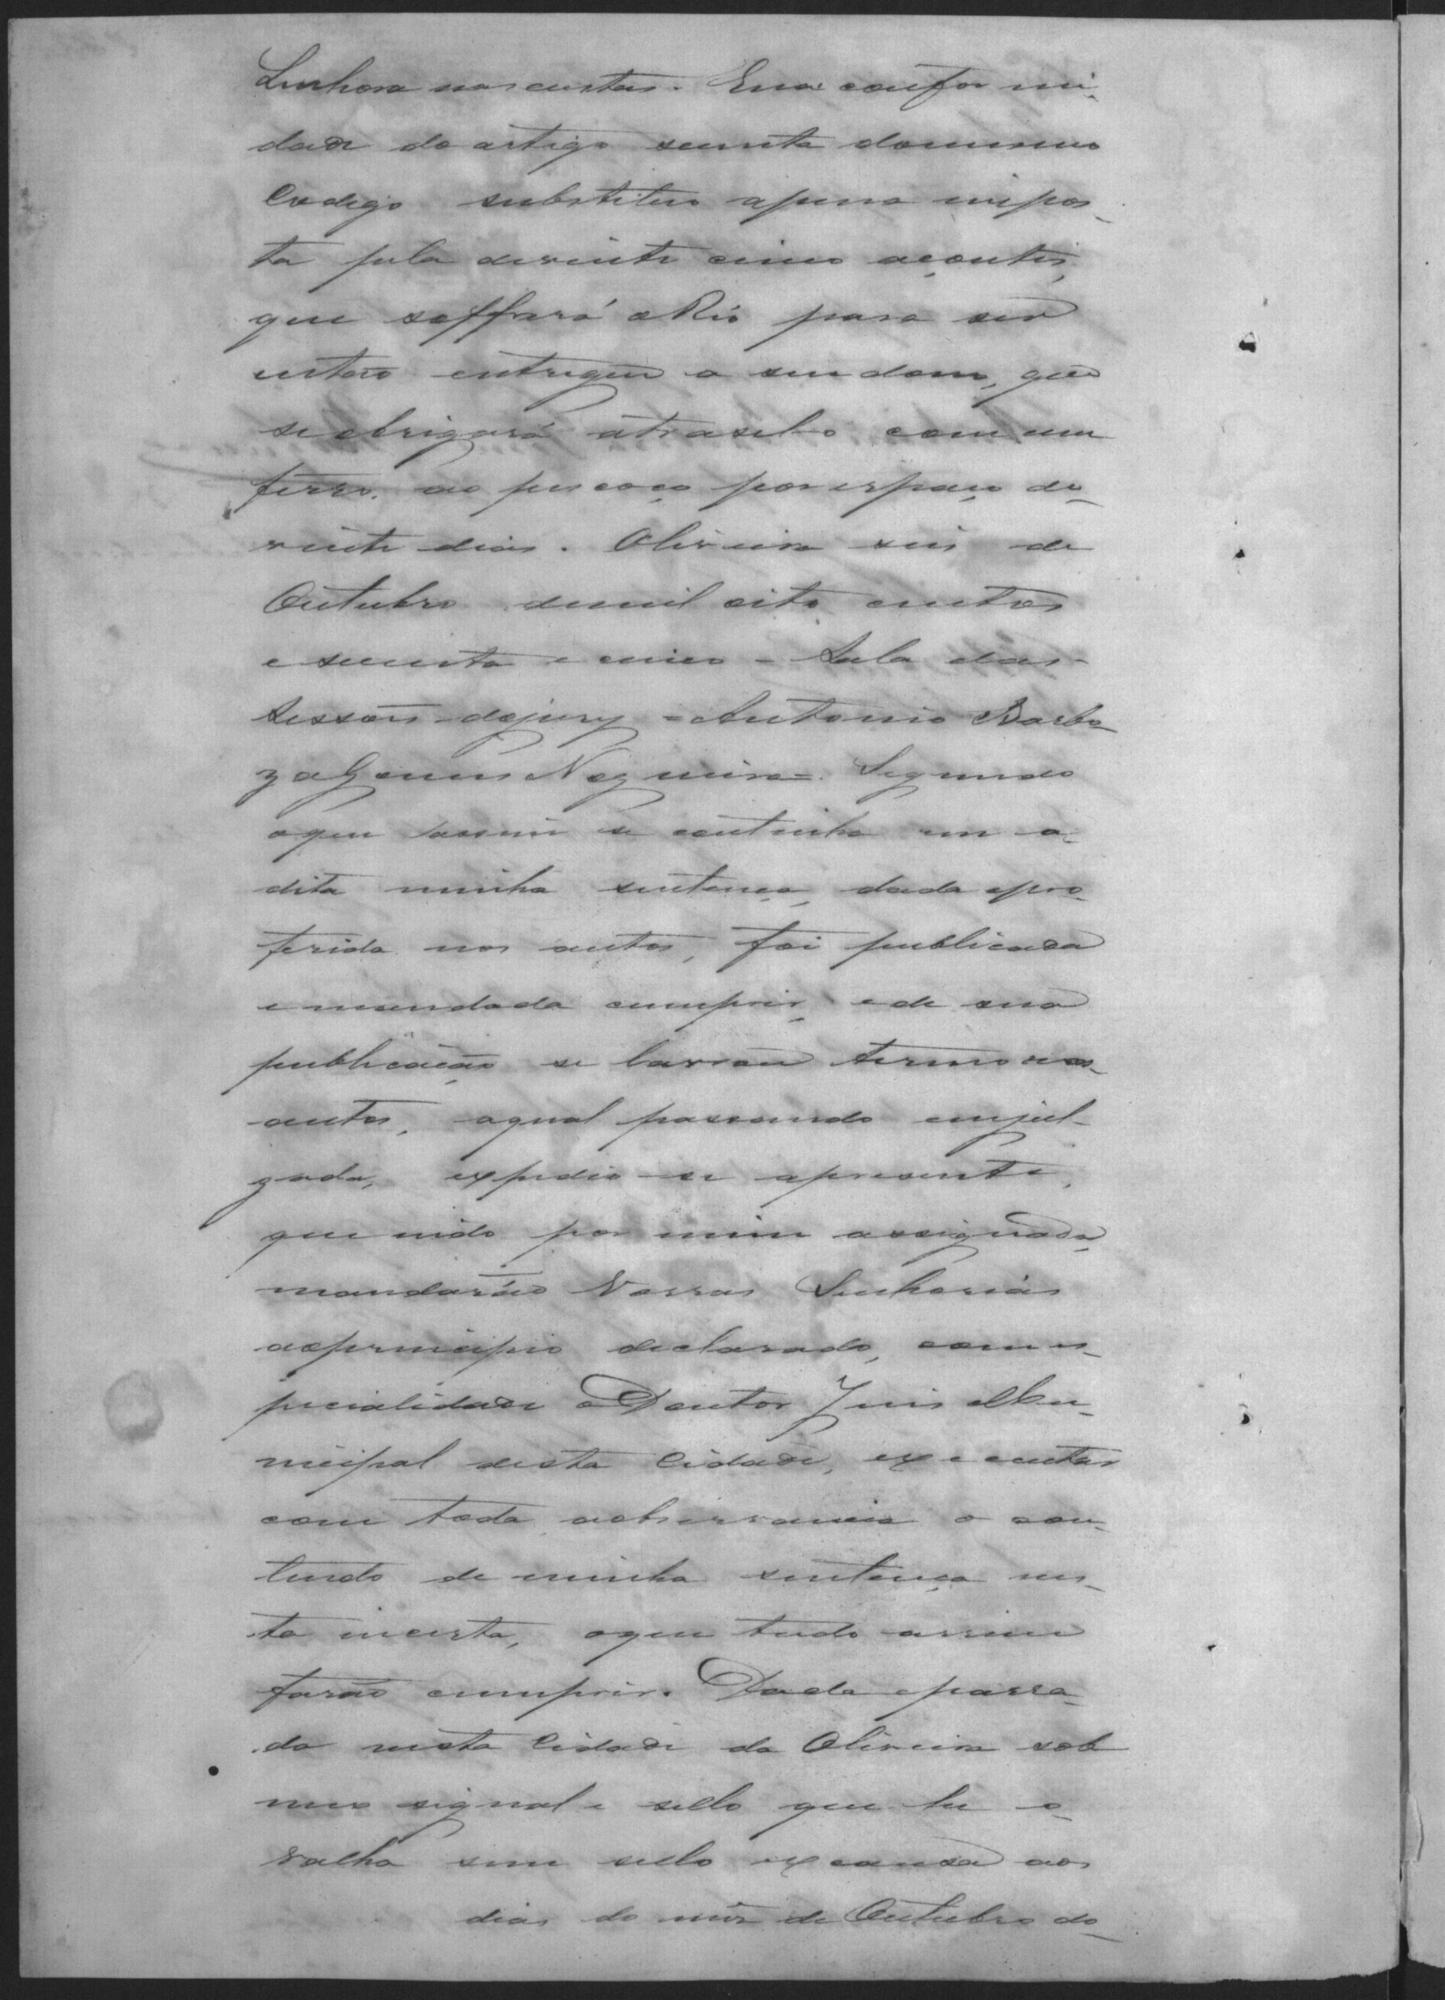 Senhora nas custas. E na confor mi-
dade do artigo secenta do mesmo
Codigo substituo a pena impos-
ta pela de vinte cinco açoutis,
que soffrerá o Réo para ser
então entregue a seu dono, que
se obrigará a trasel-o com um
ferro ao pescoço por espaço de
vinte dias. Oliveira seis de
Outubro de mil oito centos
e secenta e cinco = Sala das
Sessões do jury = Antonio Barbo
za Gomes Nogueira =. Segundo
o que assim se continha em a
dita minha sentença, dada e pro-
ferida nos autos, foi publicada
e mandada cumprir, e de sua
publicação se lavrou termo nos
autos, a qual passando em jul-
gado, expedio-se a presente,
que indo por mim assignada,
mandarão Vossas Senhorias
ao principio declarado, com es-
pecialidade o Doutor Juis Mu-
nicipal desta Cidade, executar
com toda observancia o con-
tiudo de minha sentença nes-
ta incerta, o que tudo assim
farão cumprir. Dada e passa-
da nesta Cidade da Oliveira sob
meo signal e sello que he o
valha sem sello ex causa aos
dias do mes de Outubro do